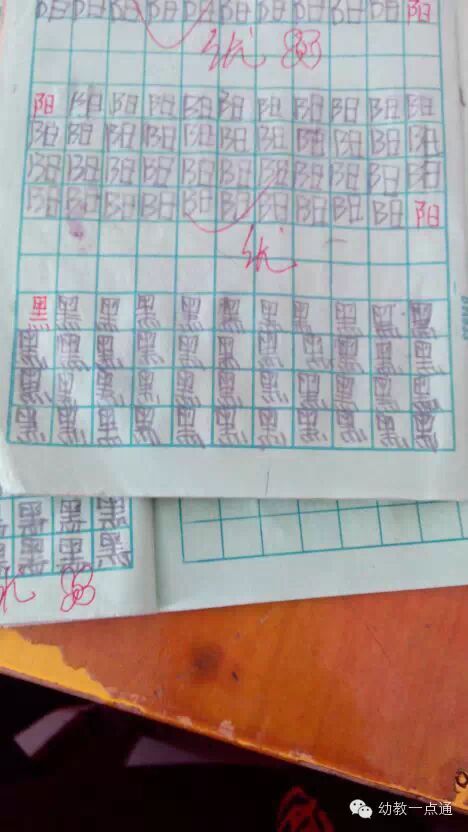 阳阳阳阳阳阳阳阳阳阳阳
阳阳阳阳阳阳阳阳阳阳阳
阳阳阳阳阳阳阳阳阳阳阳
阳阳阳阳阳阳阳阳阳阳阳
阳阳阳阳阳阳阳阳阳阳阳
黑黑黑黑黑黑黑黑黑黑黑
黑黑黑黑黑黑黑黑黑黑黑
黑黑黑黑黑黑黑黑黑黑黑
黑黑黑黑黑黑黑黑黑黑黑
黑黑黑黑
黑黑黑黑
幼教一点通